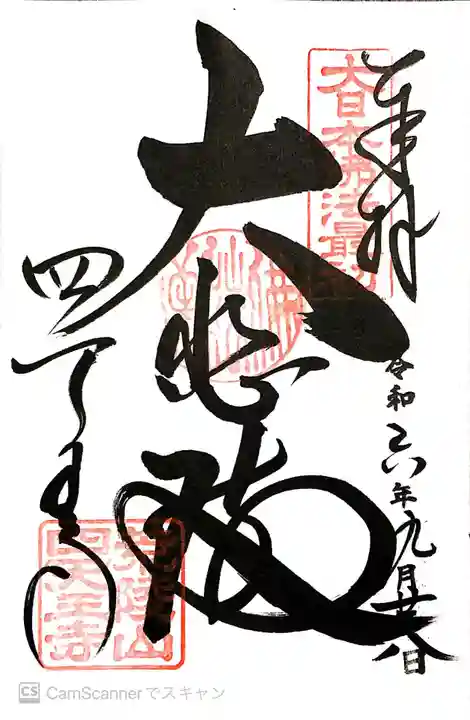 奉拝
大日本佛法最初
大悲殿
令和六年九月廿八日
四天王寺
荒陵山
四天王寺
CS CamScannerでスキャン